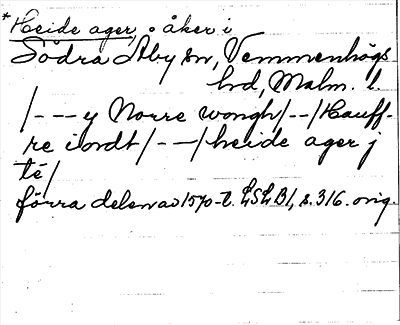 *Heide ager, : åker i
Södra Åby sn, Vemmenhögs
hd, Malm. l.
/---y Norre wongh/--/Hauff-
re iordt/---/heide ager j
té/
förra delen av 1570-t. LSLB1, s. 316. orig.